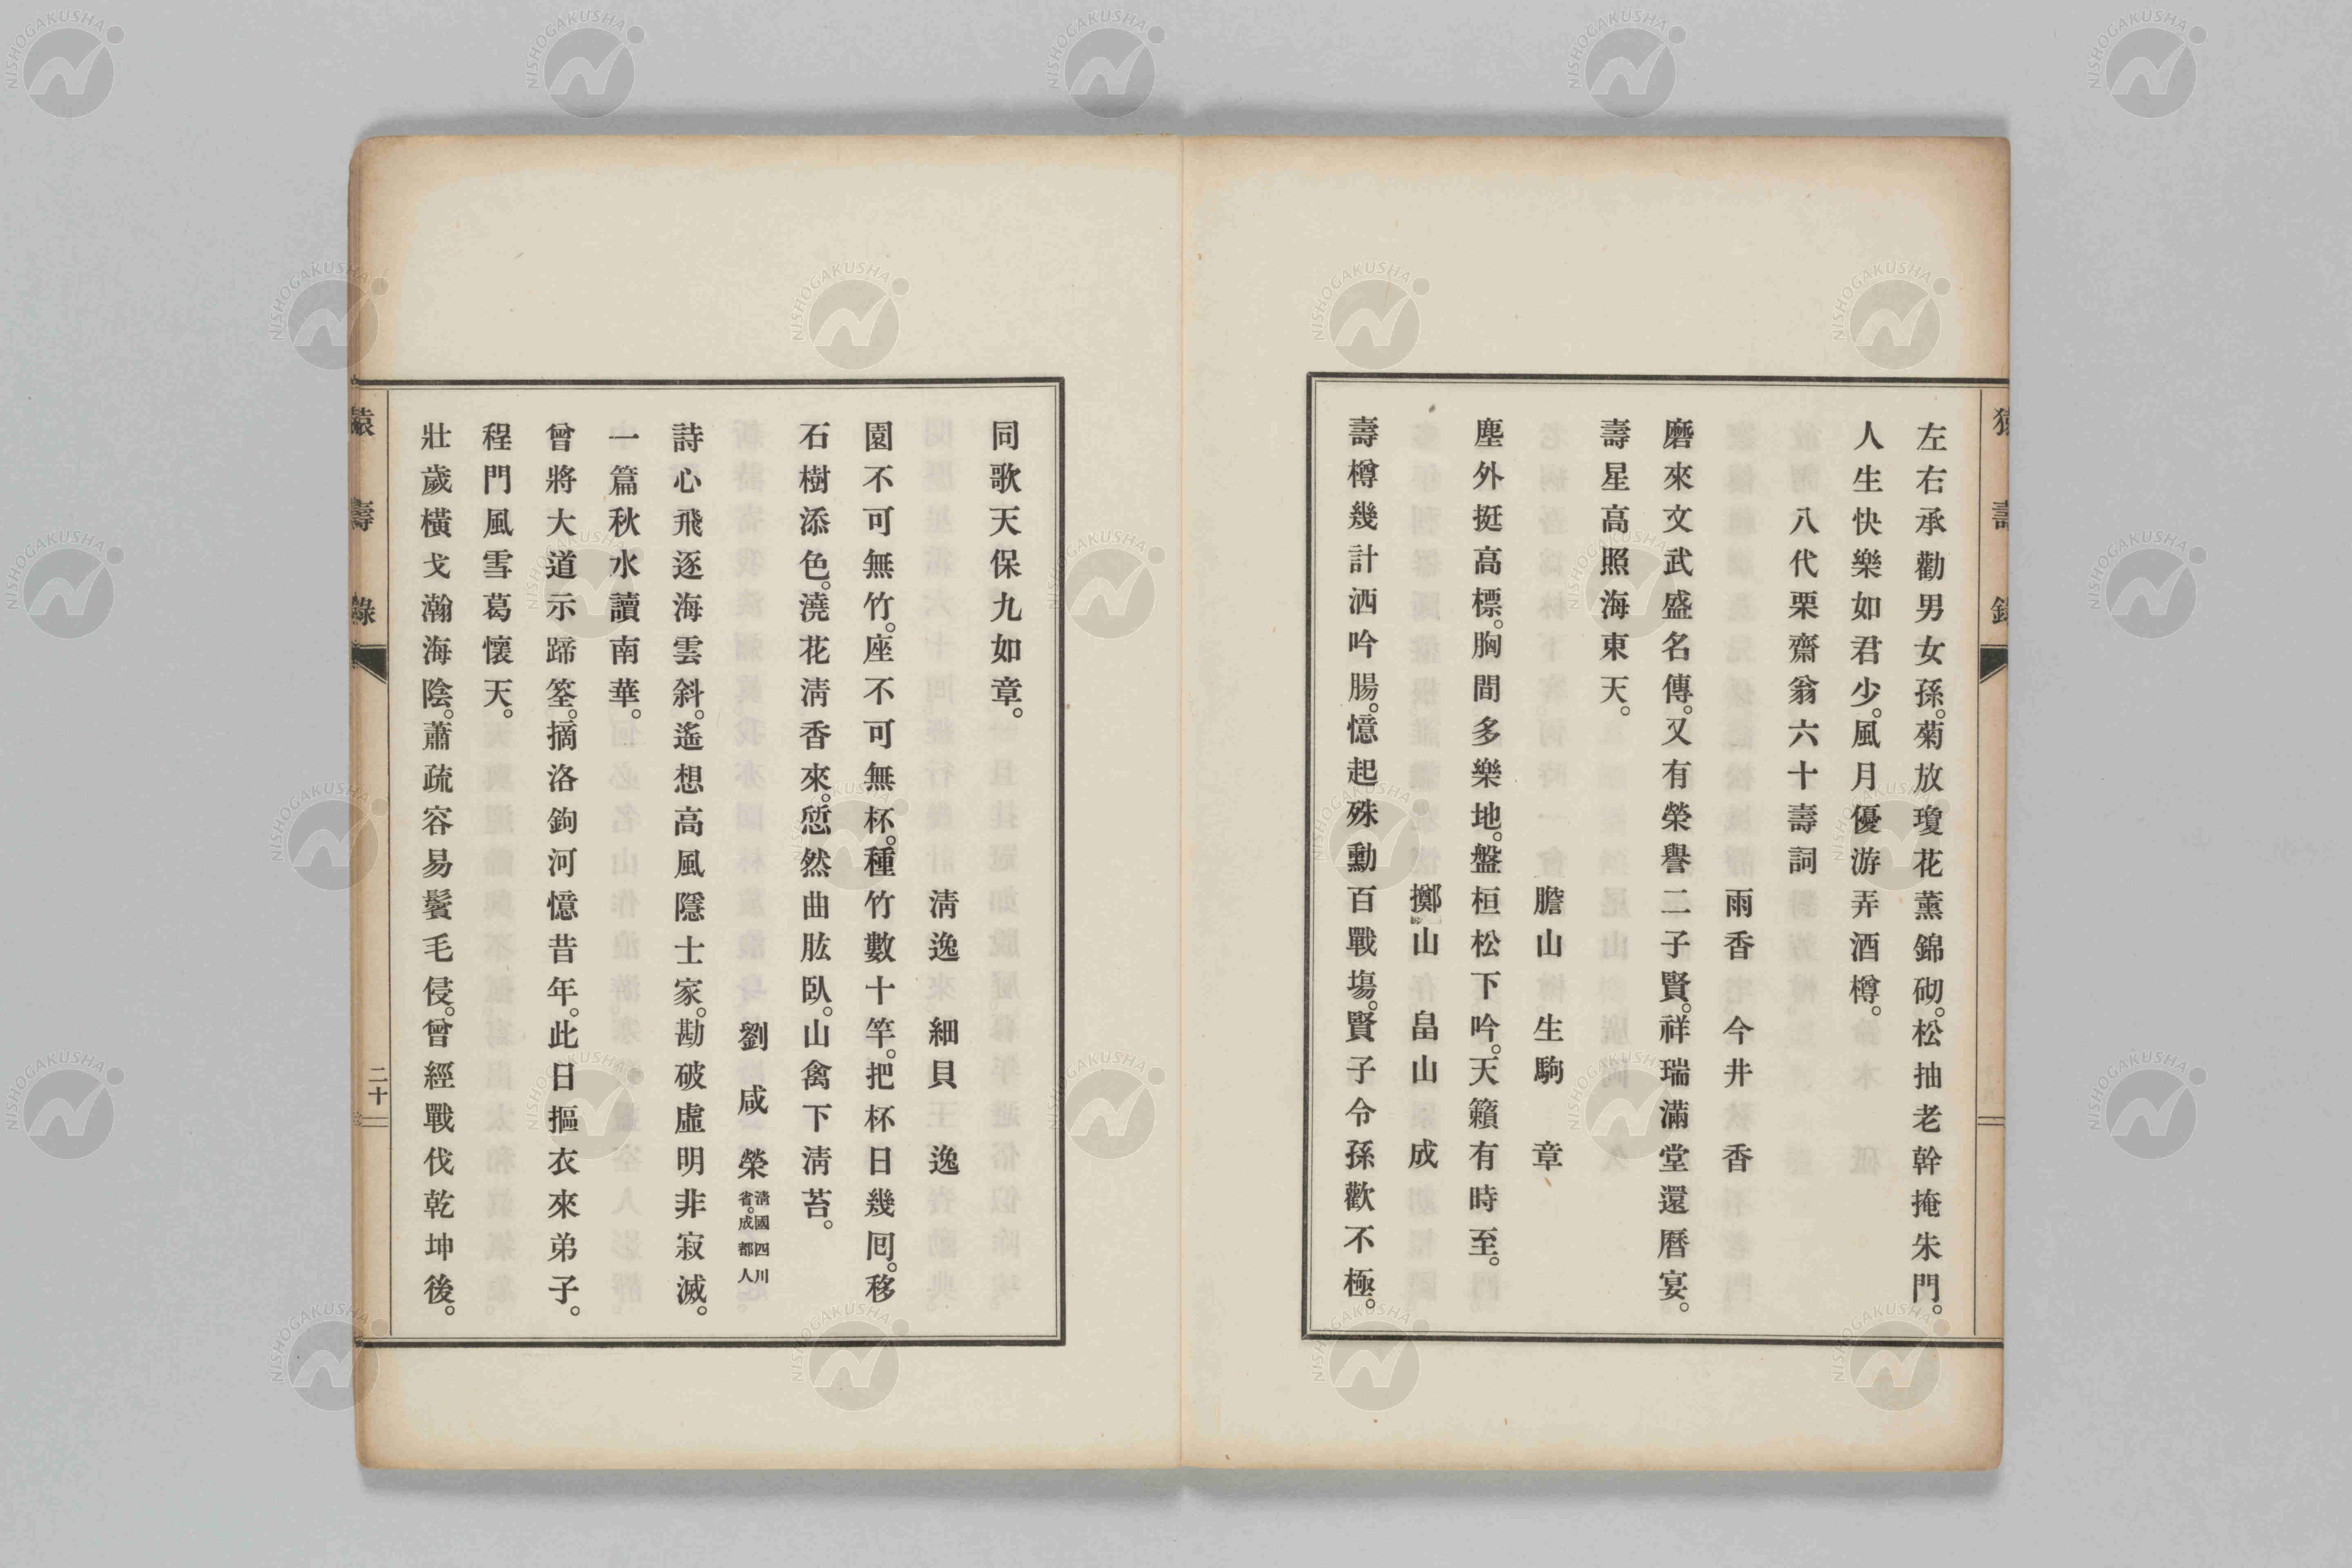 左右承勸男女孫。菊放瓊花薰錦砌。松抽老幹掩朱門。
人生快樂如君少。風月優游弄酒樽。
八代栗齋翁六十壽詞
雨香 今井 香
磨來文武盛名傳。又有榮譽二子賢。祥瑞滿堂還曆宴。
壽星高照海東天。
膽山 生駒 章
塵外挺高標。胸間多樂地。盤桓松下吟。天籟有時至。
擲山 畠山 成
壽樽幾計洒吟腸。憶起殊勳百戰塲。賢子令孫歡不極。
同歌天保九如章。
淸逸 細貝 逸
園不可無竹。座不可無杯。種竹數十竿。把杯日幾囘。移
石樹添色。澆花淸香來。愆然曲肱臥。山禽下淸苔。
劉咸榮 淸國四川省。成都人
詩心飛逐海雲斜。遙想高風隱士家。勘破虛明非寂滅。
一篇秋水讀南華。
曾將大道示蹄筌。摘洛鉤河憶昔年。此日摳衣來弟子。
程門風雪葛懷天。
壯歲橫戈瀚海陰。蕭疏容易鬢毛侵。曾經戰伐乾坤後。
壽
二十
NISHOGAKUSHA